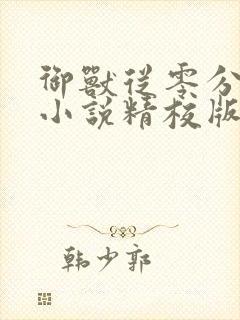 御獸從零分
小說精校版
韩少郭